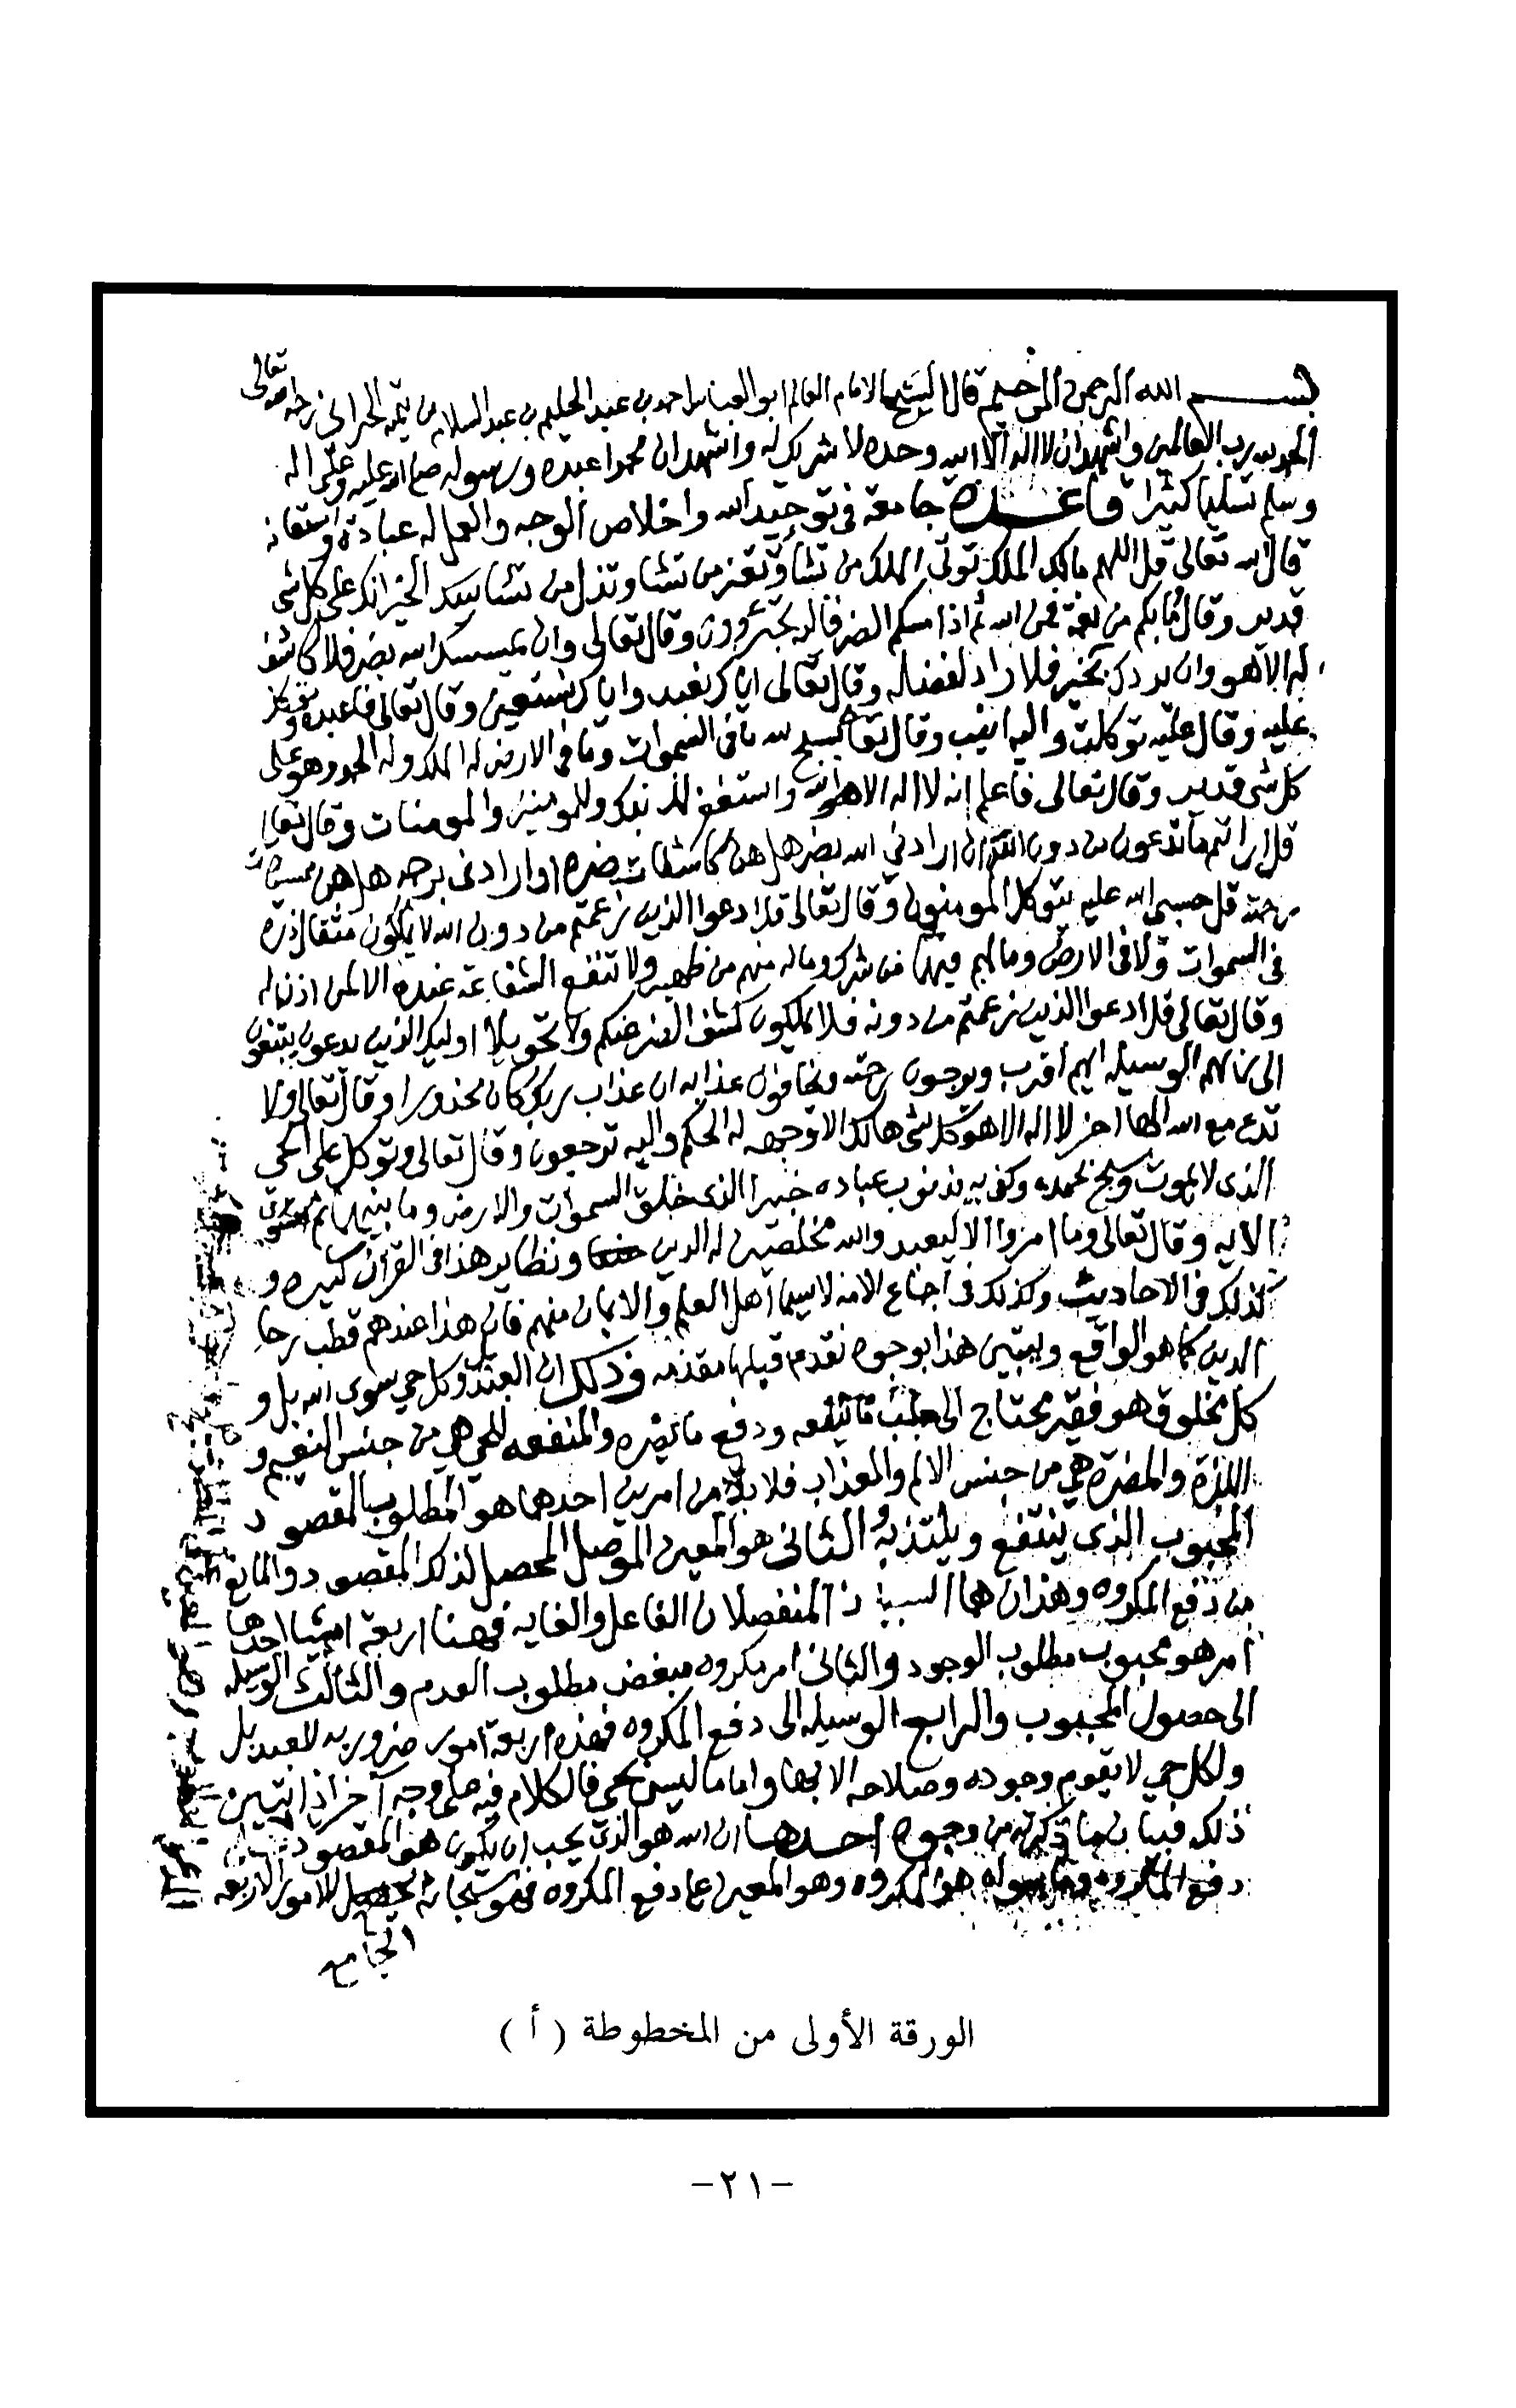 بسم الله الرحمن الرحيم قال الشيخ الامام العالم ابو العباس احمد بن عبد الحليم بن عبد السلام بن تيميه الحراني رحمه الله تعالى
الحمد لله رب العالمين واشهد ان لا اله الا الله وحده لا شريك له واشهد ان محمدا عبده ورسوله صلى الله عليه وعلى اله
وسلم تسليما كثيرا قاعدة جامعة في توحيد الله واخلاص الوجه والعمل له عبادة واستعانه
قال الله تعالى قل اللهم مالك الملك توتي الملك من تشا وتعز من تشا وتذل من تشا بيدك الخير انك على كل شي
قدير وقال وما بكم من نعمة فمن الله ثم اذا مسكم الضر فاليه تجئرون وقال تعالى وان يمسسك الله بضر فلا كاشف
له الا هو وان يردك بخير فلا راد لفضله وقال تعالى اياك نعبد واياك نستعين وقال تعالى فاعبده وتوكل
عليه وقال عليه توكلت واليه انيب وقال تعا يسبح لله ما في السموات وما في الارض له الملك وله الحمد وهو على
كل شي قدير وقال تعالى فاعلم انه لا اله الا الله واستغفر لذنبك وللمومنين والمومنات وقال تعا
قل ارايتم ما تدعون من دون الله ان ارادني الله بضر هل هن كاشفات ضره او ارادني برحمه هل هن ممسكات
رحمته قل حسبي الله عليه يتوكل المومنون وقال تعالى قل ادعوا الذين زعمتم من دون الله لا يملكون مثقال ذرة
في السموات ولا في الارض وما لهم فيهما من شرك وما له منهم من ظهير ولا تنفع الشفاعة عنده الا لمن اذن له
وقال تعالى قل ادعوا الذين زعمتم من دونه فلا يملكون كشف الضر عنكم ولا تحويلا اوليك الذين يدعون يبتغون
الى ربهم الوسيله ايهم اقرب ويرجون رحمته ويخافون عذابه ان عذاب ربك كان محذورا وقال تعالى ولا
تدع مع الله الها اخر لا اله الا هو كل شي هالك الا وجهه له الحكم واليه ترجعون وقال تعالى وتوكل على الحي
الذي لا يموت وسبح بحمده وكفى به بذنوب عباده خبيرا الذي خلق السموات والارض وما بينهما ثم استوى
الايه وقال تعالى وما امروا الا ليعبدوا الله مخلصين له الدين حنفا ونظاير هذا في القرآن كثيره و
كذلك في الاحاديث وكذلك في اجماع الامه لا سيما اهل العلم والايمان منهم فان هذا عندهم قطب رحا
الدين كما هو الواقع ويتبين هذا بوجوه نقدم قبلها مقدمه وذلك ان العبد وكل حي سوى الله بل و
كل مخلوق هو فقير محتاج الى جلب ما ينفعه ودفع ما يضره والمنفعه للحي هي من جنس النعيم و
اللذة والمضرة هي من جنس الالم والعذاب فلا بد من امرين احدهما هو المطلوب المقصود
المحبوب الذي ينتفع ويلتذ به والثاني هو المعين الموصل المحصل لذلك المقصود والمانع
من دفع المكروه وهذان هما السببان المنفصلان الفاعل والغايه فهنا اربعة اشيا احدها
امر هو محبوب مطلوب الوجود والثاني امر مكروه مبغض مطلوب العدم والثالث الوسيله
الى حصول المحبوب والرابع الوسيله الى دفع المكروه فهذه اربعة امور ضروريه للعبد بل
ولكل حي لا يقوم وجوده وصلاحه الا بها واما ما ليس بحي فالكلام فيه على وجه آخر اذا تبين
ذلك فبيان ما ذكرته من وجوه احدها ان الله هو الذي يحب ان يكون هو المقصود
دفع المكروه وما سواه هو المكروه وهو المعين على دفع المكروه فهو سبحانه للامور الاربعه
الجامع
الورقة الأولى من المخطوطة ( أ )
-٢١-